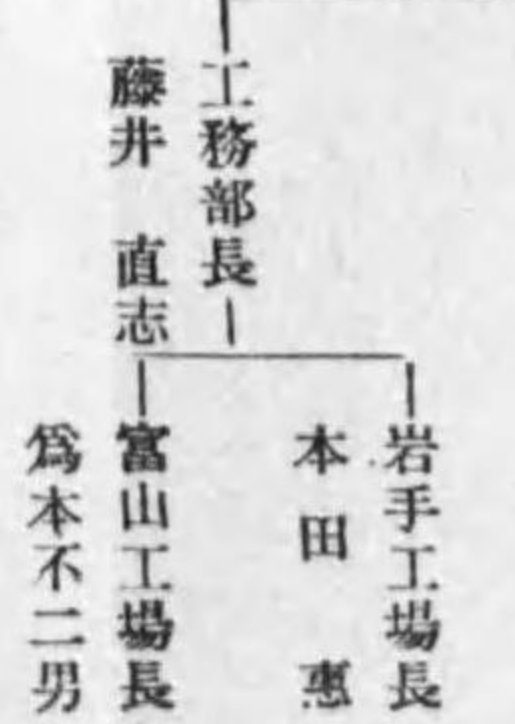 工務部長
藤井 直志
岩手工場長
本田 惠
富山工場長
爲本不二男